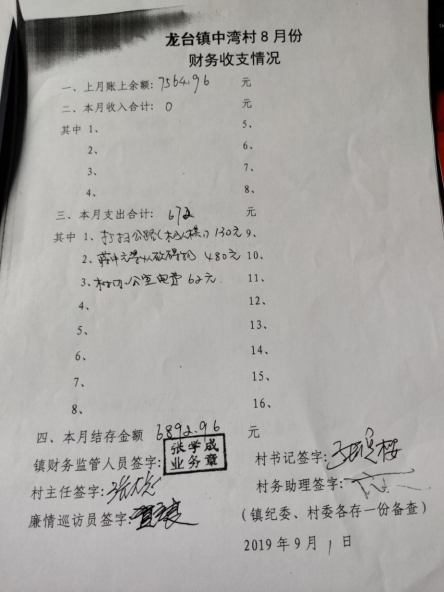 龙台镇中湾村8月份
财务收支情况
一、上月账上余额: 7564.96 元
二、本月收入合计: 0 元
其中 1、 5、
2、 6、
3、 7、
4、 8、
三、本月支出合计: 672 元
其中 1、打扫公路 130元 9、
2、 480元 10、
3、村办公室电费 62元 11、
4、 12、
5、 13、
6、 14、
7、 15、
8、 16、
四、本月结存金额 6892.96 元
镇财务监管人员签字: 张学成 业务章 村书记签字:
村主任签字: 村务助理签字:
廉情巡访员签字: (镇纪委、村委各存一份备查)
2019年9月1日